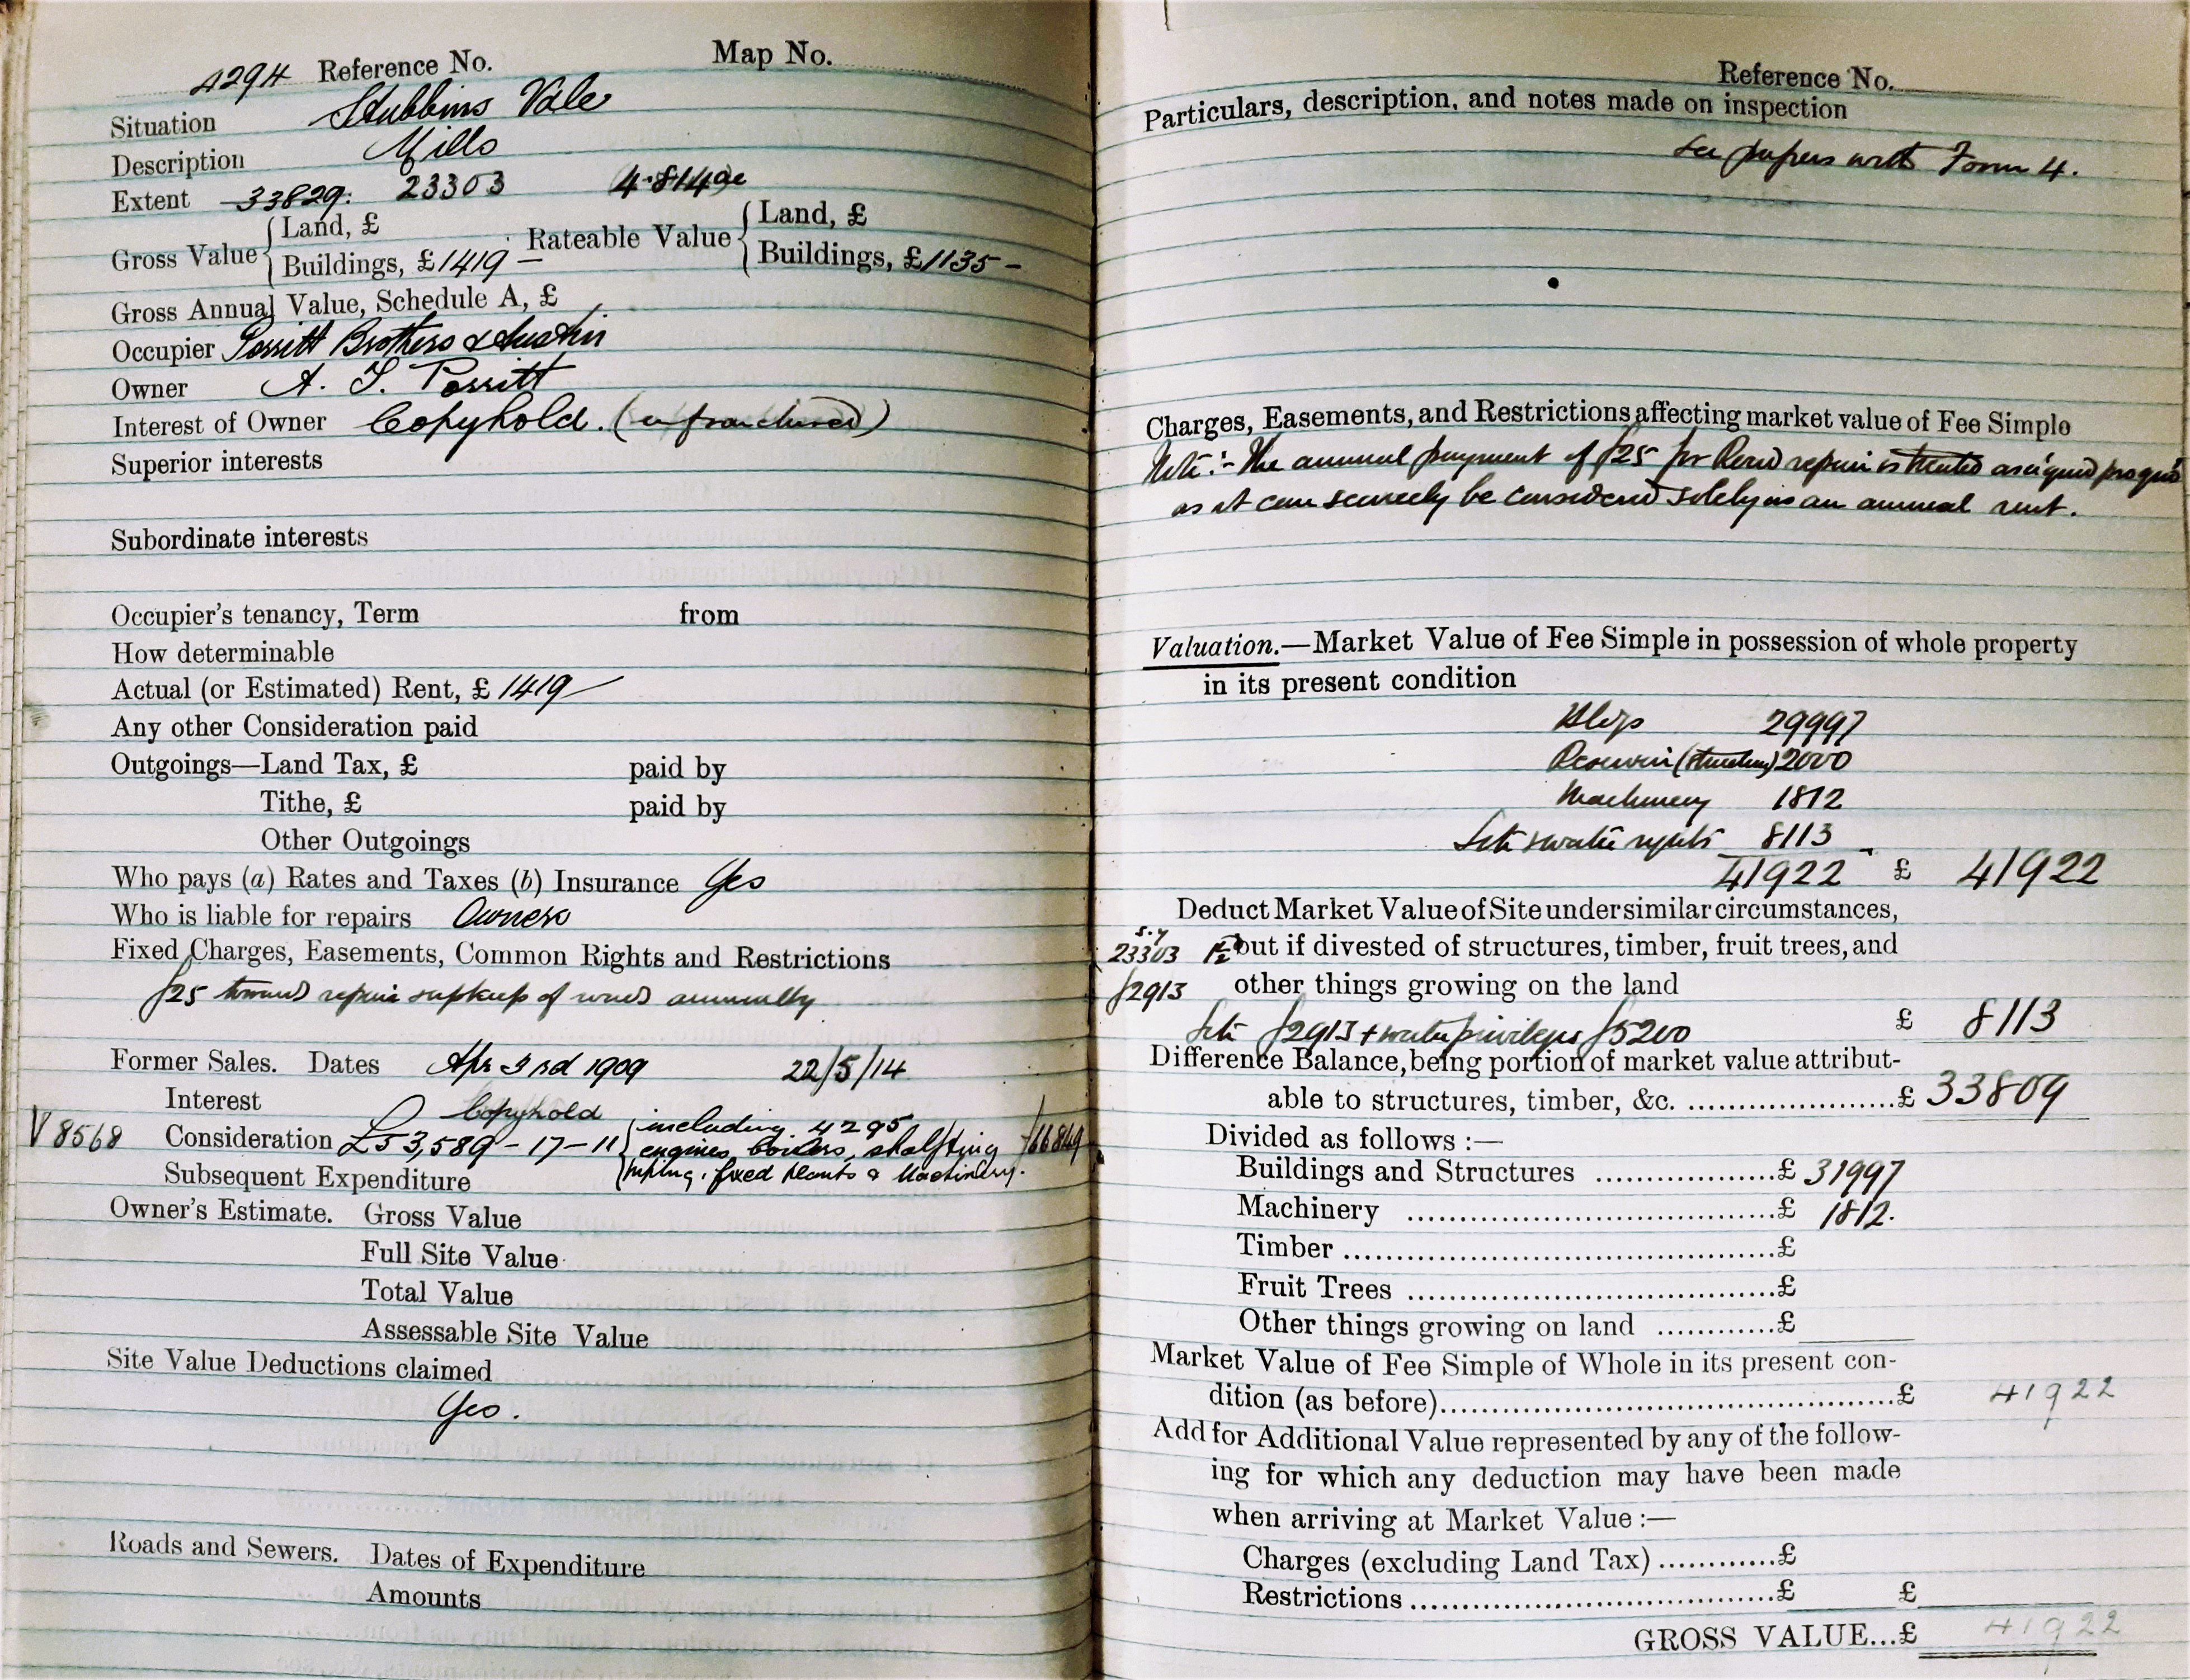 4294 Reference No. Map No.
Situation Stubbins Vale
Description Mills
Extent 33829. 23303 4.814 ac
Gross Value { Land, £ Rateable Value { Land, £
Buildings, £1419 – Buildings, £1135 –
Gross Annual Value, Schedule A, £
Occupier Porritt Brothers & Austin
Owner A. T. Porritt
Interest of Owner Copyhold. (enfranchised)
Superior interests
Subordinate interests
Occupier's tenancy, Term from
How determinable
Actual (or Estimated) Rent, £ 1419
Any other Consideration paid
Outgoings—Land Tax, £ paid by
Tithe, £ paid by
Other Outgoings
Who pays (a) Rates and Taxes (b) Insurance Yes
Who is liable for repairs Owners
Fixed Charges, Easements, Common Rights and Restrictions
£25 towards repair & upkeep of road annually
Former Sales. Dates Apr 3rd 1909 22/5/14
Interest Copyhold
V 8568 Consideration £53,589-17-11 { including 4295 engines, boilers, shafting £66849
piping, fixed plants & Machinery.
Subsequent Expenditure
Owner's Estimate. Gross Value
Full Site Value
Total Value
Assessable Site Value
Site Value Deductions claimed
Yes.
Roads and Sewers. Dates of Expenditure
Amounts
Reference No.
Particulars, description, and notes made on inspection
See papers with Form 4.
Charges, Easements, and Restrictions affecting market value of Fee Simple
Note:- The annual payment of £25 for Road repair is treated as a quid pro quo
as it can scarcely be considered solely as an annual rent.
Valuation.—Market Value of Fee Simple in possession of whole property
in its present condition
Bldgs 29997
Reservoir (structure) 2000
Machinery 1812
Site & water rights 8113
41922 £ 41922
Deduct Market Value of Site under similar circumstances,
s.y
23303 but if divested of structures, timber, fruit trees, and
£2913 other things growing on the land
Site £2913 + water privileges £5200 £ 8113
Difference Balance, being portion of market value attribut-
able to structures, timber, &c. ......................£ 33809
Divided as follows :—
Buildings and Structures ..................£ 31997
Machinery .....................................£ 1812.
Timber ...........................................£
Fruit Trees .....................................£
Other things growing on land ............£
Market Value of Fee Simple of Whole in its present con-
dition (as before)..............................................£ 41922
Add for Additional Value represented by any of the follow-
ing for which any deduction may have been made
when arriving at Market Value :—
Charges (excluding Land Tax) ............£
Restrictions .....................................£ £
GROSS VALUE...£ 41922